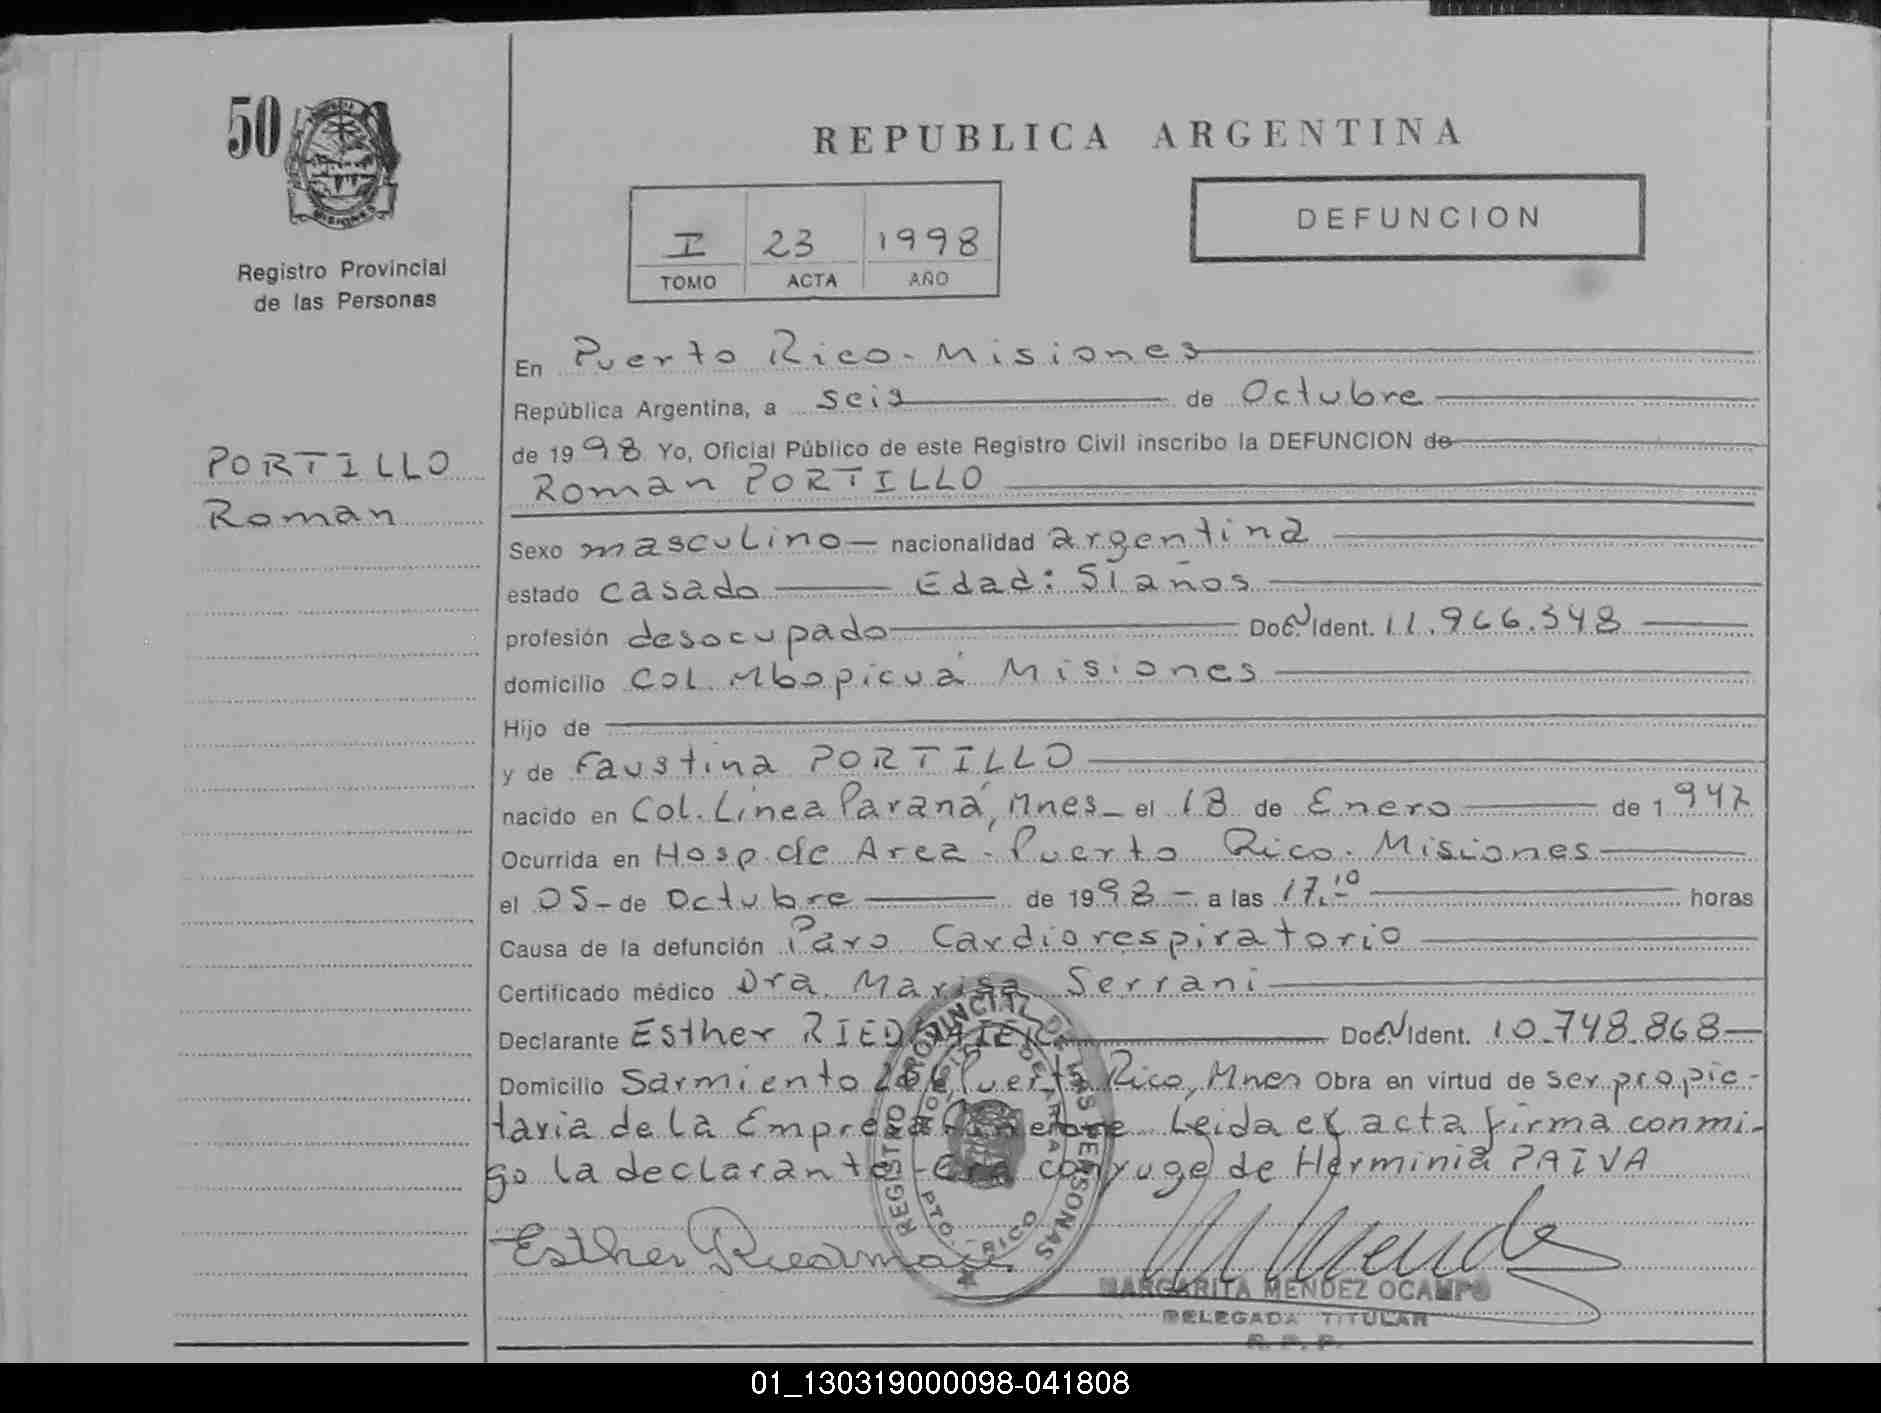 50
MISIONES
Registro Provincial
de las Personas
PORTILLO
Roman
REPUBLICA ARGENTINA
I 23 1998
TOMO ACTA AÑO
DEFUNCION
En Puerto Rico - Misiones
República Argentina, a seis de Octubre
de 1998 Yo, Oficial Público de este Registro Civil inscribo la DEFUNCION de
Roman PORTILLO
Sexo masculino nacionalidad argentina
estado casado Edad: 51 años
profesión desocupado Doc. N Ident. 11.966.548
domicilio Col. Mbopicuá Misiones
Hijo de
y de Faustina PORTILLO
nacido en Col. Línea Paraná, Mnes el 18 de Enero de 1947
Ocurrida en Hosp. de Area - Puerto Rico - Misiones
el 05 - de Octubre de 1998 - a las 17.10 horas
Causa de la defunción Paro Cardiorespiratorio
Certificado médico Dra. Marisa Serrani
Declarante Esther RIEDMAIER Doc. N Ident. 10.748.868
Domicilio Sarmiento Puerto Rico, Mnes Obra en virtud de ser propie-
taria de la Empresa Fúnebre Leida el acta firma conmi-
go la declarante - Era conyuge de Herminia PAIVA
REGISTRO PROVINCIAL DE LAS PERSONAS
PTO. RICO
Esther Riedmaier
M Mendez
MARGARITA MENDEZ OCAMPO
DELEGADA TITULAR
R. P. P.
01_130319000098-041808